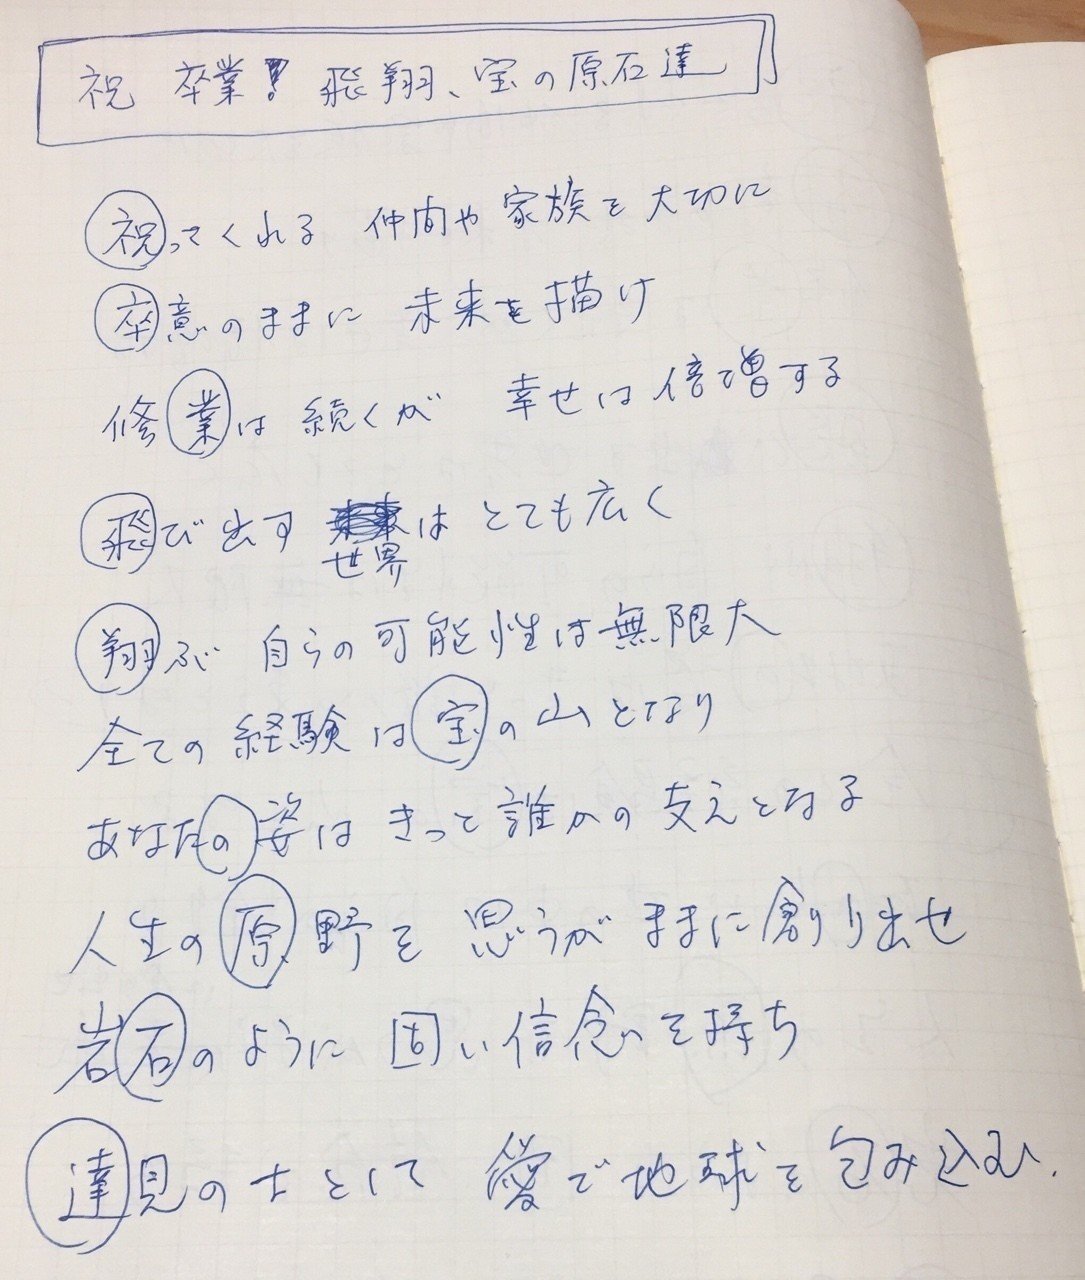 祝 卒業! 飛翔、宝の原石達
祝ってくれる 仲間や家族を大切に
卒意のままに 未来を描け
修業は続くが 幸せは倍増する
飛び出す 世界は とても広く
翔ぶ 自らの可能性は無限大
全ての経験は宝の山となり
あなたの姿は きっと誰かの支えとなる
人生の原野を 思うがままに創り出せ
岩石のように 固い信念を持ち
達見の士として 愛で地球を包み込む.